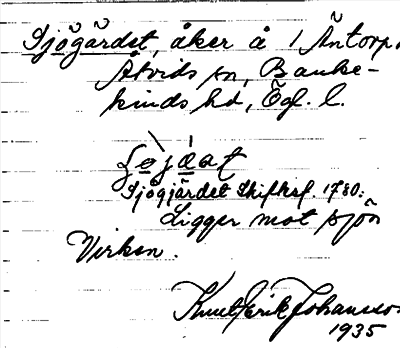 Sjögärdet, åker å 1 Äntorp,
Åtvids sn, Banke-
kinds hd, Ög. l.
Sjögärdet Skifksf. 1780:
Ligger mot sjön
Virken.
Knut Erik Johansson
1935